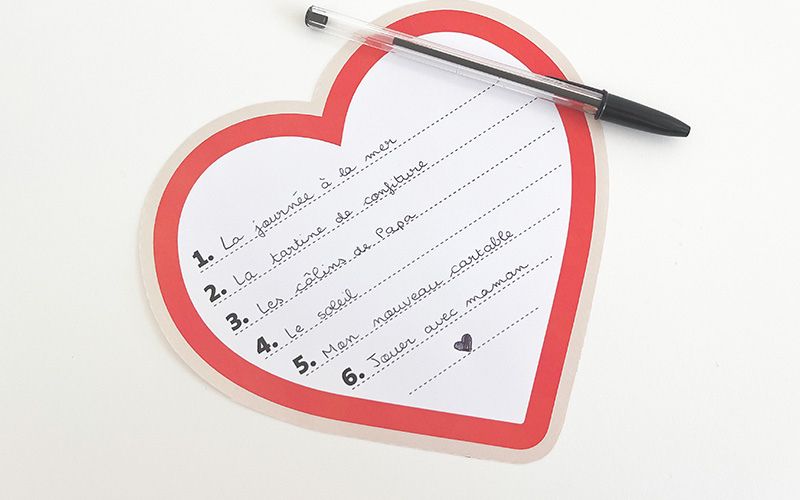 1. La journée à la mer
2. La tartine de confiture
3. Les câlins de Papa
4. Le soleil
5. Mon nouveau cartable
6. Jouer avec maman